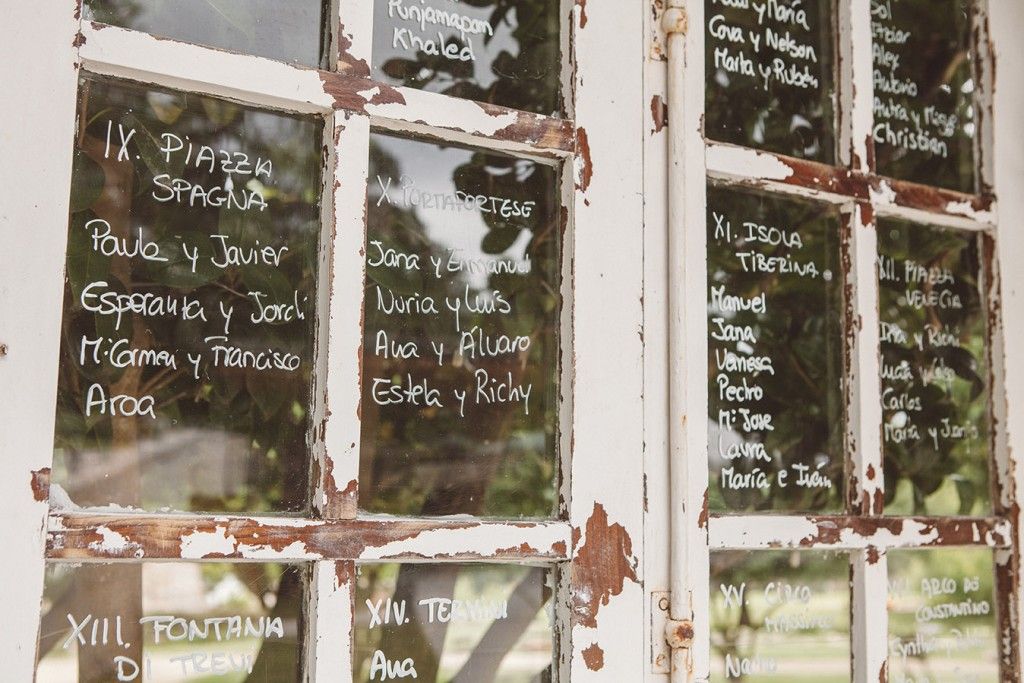 Punjamapam
Khaled
y María
Cova y Nelson
Marta y Rubén
Sol
Alex
Antonio
Christian
IX. PIAZZA
SPAGNA
Paula y Javier
Esperanta y Jordi
Mª Carmen y Francisco
Aroa
X. PORTAPORTESE
Jana y Emmanuel
Nuria y Luís
Ana y Álvaro
Estela y Richy
XI. ISOLA
TIBERINA
Manuel
Jana
Vanesa
Pedro
Mª Jose
Laura
María e Iván
XII. PIAZZA
VENECIA
Carlos
María y
XIII. FONTANA
DI TREVI
XIV. TERMINI
Ana
XV. CIRCO
MASSIMO
ARCO DE
CONSTANTINO